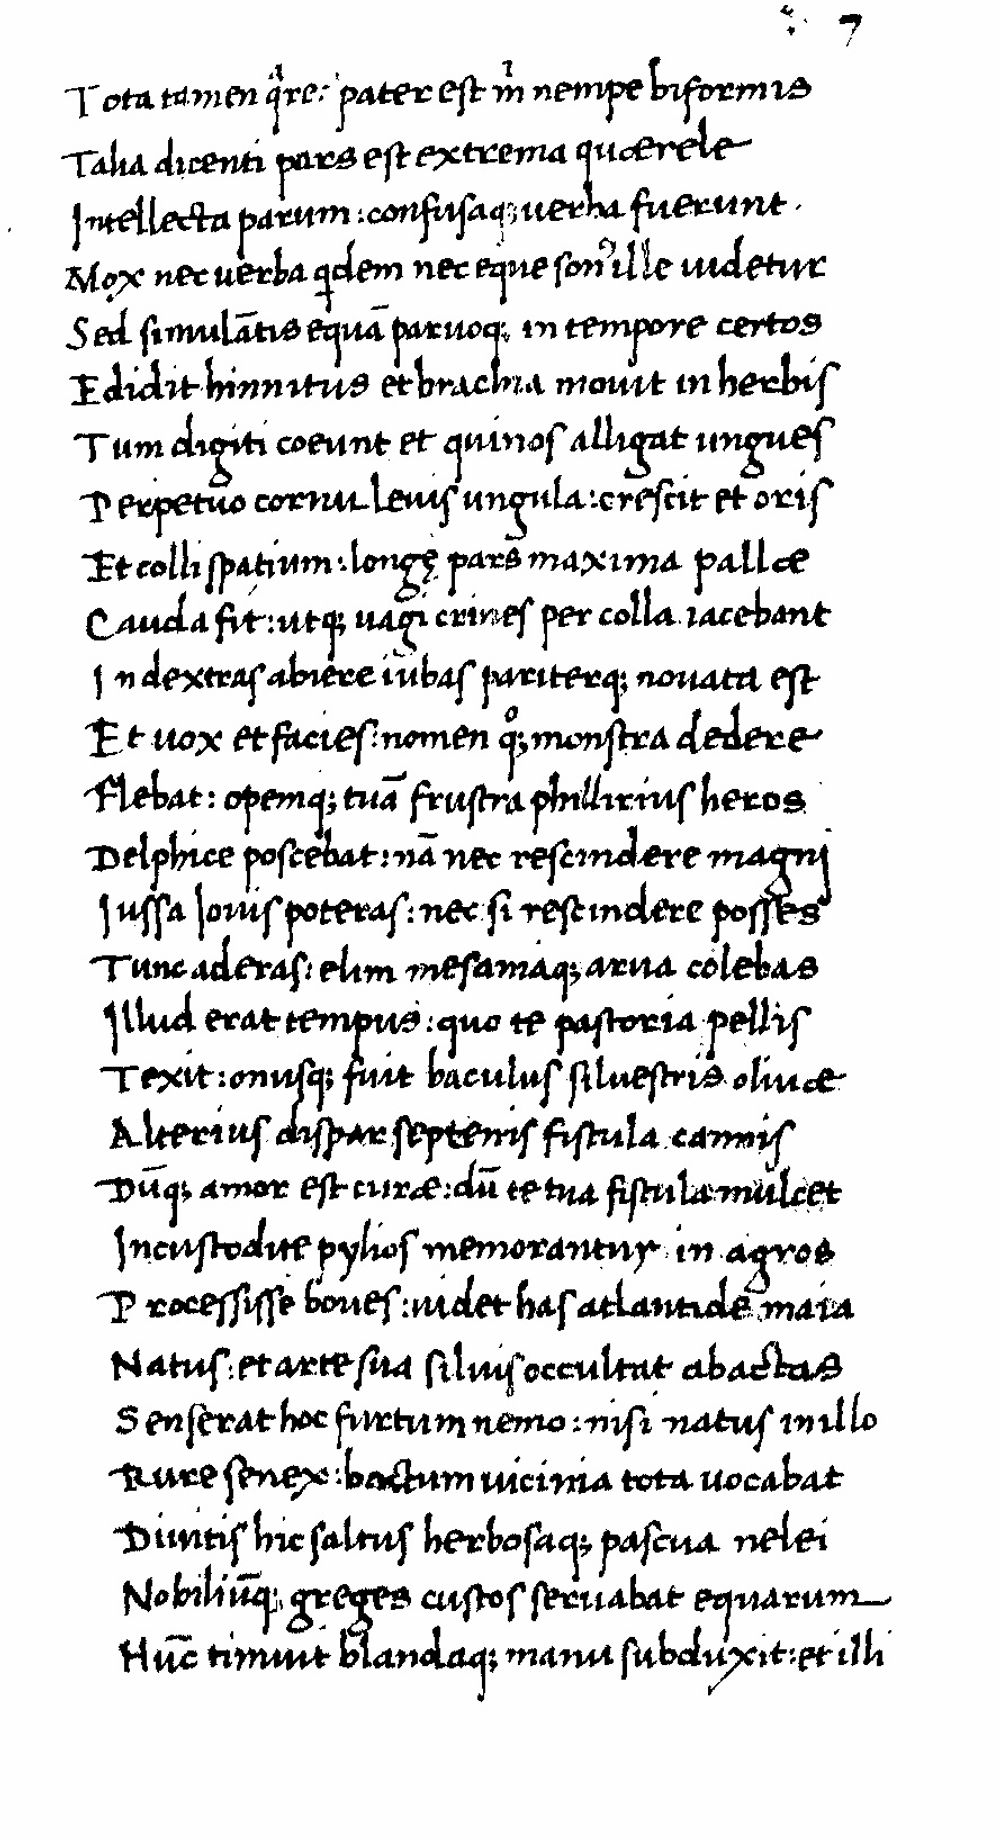 7
Tota tamen qͣre: pater est mͥ nempe biformis
Talia dicenti pars est extrema quærele
Intellecta parum: confusaq; uerba fuerunt.
Mox nec uerba qdem nec eque son⁹ ille uidetur
Sed simulātis equā paruoq; in tempore certos
Edidit hinnitus et brachia mouit in herbis
Tum digiti coeunt et quinos alligat ungues
Perpetuo cornu leuis ungula: crescit et oris
Et colli spatium: longę pars maxima pallæ
Cauda fit: utq; uagi crines per colla iacebant
In dextras abiere iubas pariterq; nouata est
Et uox et facies: nomen qͦ; monstra dedere
Flebat: opemq; tuā frustra phillirius heros
Delphice poscebat: nā nec rescindere magni
Iussa Iouis poteras: nec si rescindere posses
Tunc aderas: elim mesaniaq; arua colebas
Illud erat tempus: quo te pastoria pellis
Texit: onusq; fuit baculus siluestris oliuæ
Alterius dispar septenis fistula cannis
Dūq; amor est curæ: dū te tua fistula mulcet
Incustodite pylios memorantur in agros
Processisse boues: uidet has atlantide maia
Natus: et arte sua siluis occultat abactas
Senserat hoc furtum nemo: nisi natus in illo
Rure senex: bactum uicinia tota uocabat
Diuitis hic saltus herbosaq; pascua nelei
Nobiliūq; greges custos seruabat equarum
Hūc timuit blandaq; manu subduxit: et illi